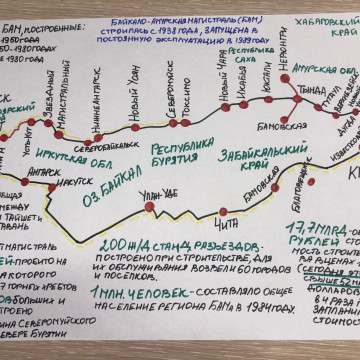 БАМ, ПОСТРОЕННЫЕ:
1980 ГОДА
БАЙКАЛО-АМУРСКАЯ МАГИСТРАЛЬ (БАМ)
СТРОИЛАСЬ С 1938 ГОДА, ЗАПУЩЕНА В
ПОСТОЯННУЮ ЭКСПЛУАТАЦИЮ В 1989 ГОДУ
ХАБАРОВСКИЙ
КРАЙ
РЕСПУБЛИКА
САХА
АМУРСКАЯ ОБЛ.
НЕРЮНГРИ
ЗВЕЗДНЫЙ
МАГИСТРАЛЬНЫЙ
НИЖНЕАНГАРСК
НОВЫЙ УОЯН
СЕВЕРОМУЙСК
ТАКСИМО
НОВАЯ ЧАРА
ТЫНДА
БАМОВСКАЯ
СЕВЕРОБАЙКАЛЬСК
ИРКУТСКАЯ ОБЛ.
РЕСПУБЛИКА
БУРЯТИЯ
ЗАБАЙКАЛЬСКИЙ
КРАЙ
ОЗ. БАЙКАЛ
АНГАРСК
ИРКУТСК
УЛАН-УДЕ
ЧИТА
БАМОВСКАЯ
БЛАГОВЕЩЕНСК
ОБЩАЯ
МЕЖДУ
ТАЙШЕТ
МАГИСТРАЛЬ
200 Ж/Д СТАНЦ, РАЗЪЕЗДОВ-
ПОСТРОЕНО ПРИ СТРОИТЕЛЬСТВЕ, ДЛЯ
ИХ ОБСЛУЖИВАНИЯ ВОЗВЕЛИ 60 ГОРОДОВ
И ПОСЕЛКОВ.
1 МЛН. ЧЕЛОВЕК - СОСТАВЛЯЛО ОБЩЕЕ
НАСЕЛЕНИЕ РЕГИОНА БАМА В 1984 ГОДУ.
17,7 МЛРД
РУБЛЕЙ
СТРОИТ
В ЦЕНАХ
СЕГОДНЯ
СВЫШЕ 52 М
ДОЛЛАРОВ
В 4 РАЗА
ЗАПЛАНИ
СТОИМОС
КОТОРОГО
ГОРНЫХ ХРЕБТОВ
БОЛЬШИХ И
СЕВЕРОМУЙСКОГО
СЕВЕРЕ БУРЯТИИ